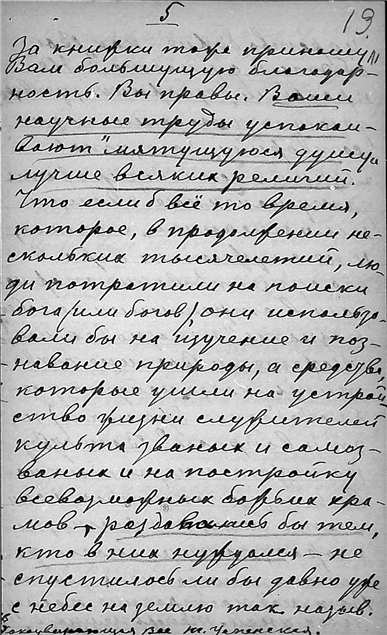 5
19.
За книжки тоже приношу
Вам большущую благодар-
ность. Вы правы. Ваши
научные труды успокаи-
вают "мятущуюся душу"
лучше всяких религий.
Что если б всё то время,
которое, в продолжении не-
скольких тысячелетий, лю-
ди потратили на поиски
бога (или богов) они использо-
вали бы на изучение и поз-
навание природы, а средства,
которые ушли на устрой
ство жизни служителей
культа званых и самоз-
ваных и на постройку
всевозможных божьих хра-
мов – раздавались бы тем,
кто в них нуждался – не
спустилось ли бы давно уже
с небес на землю так назыв.
все